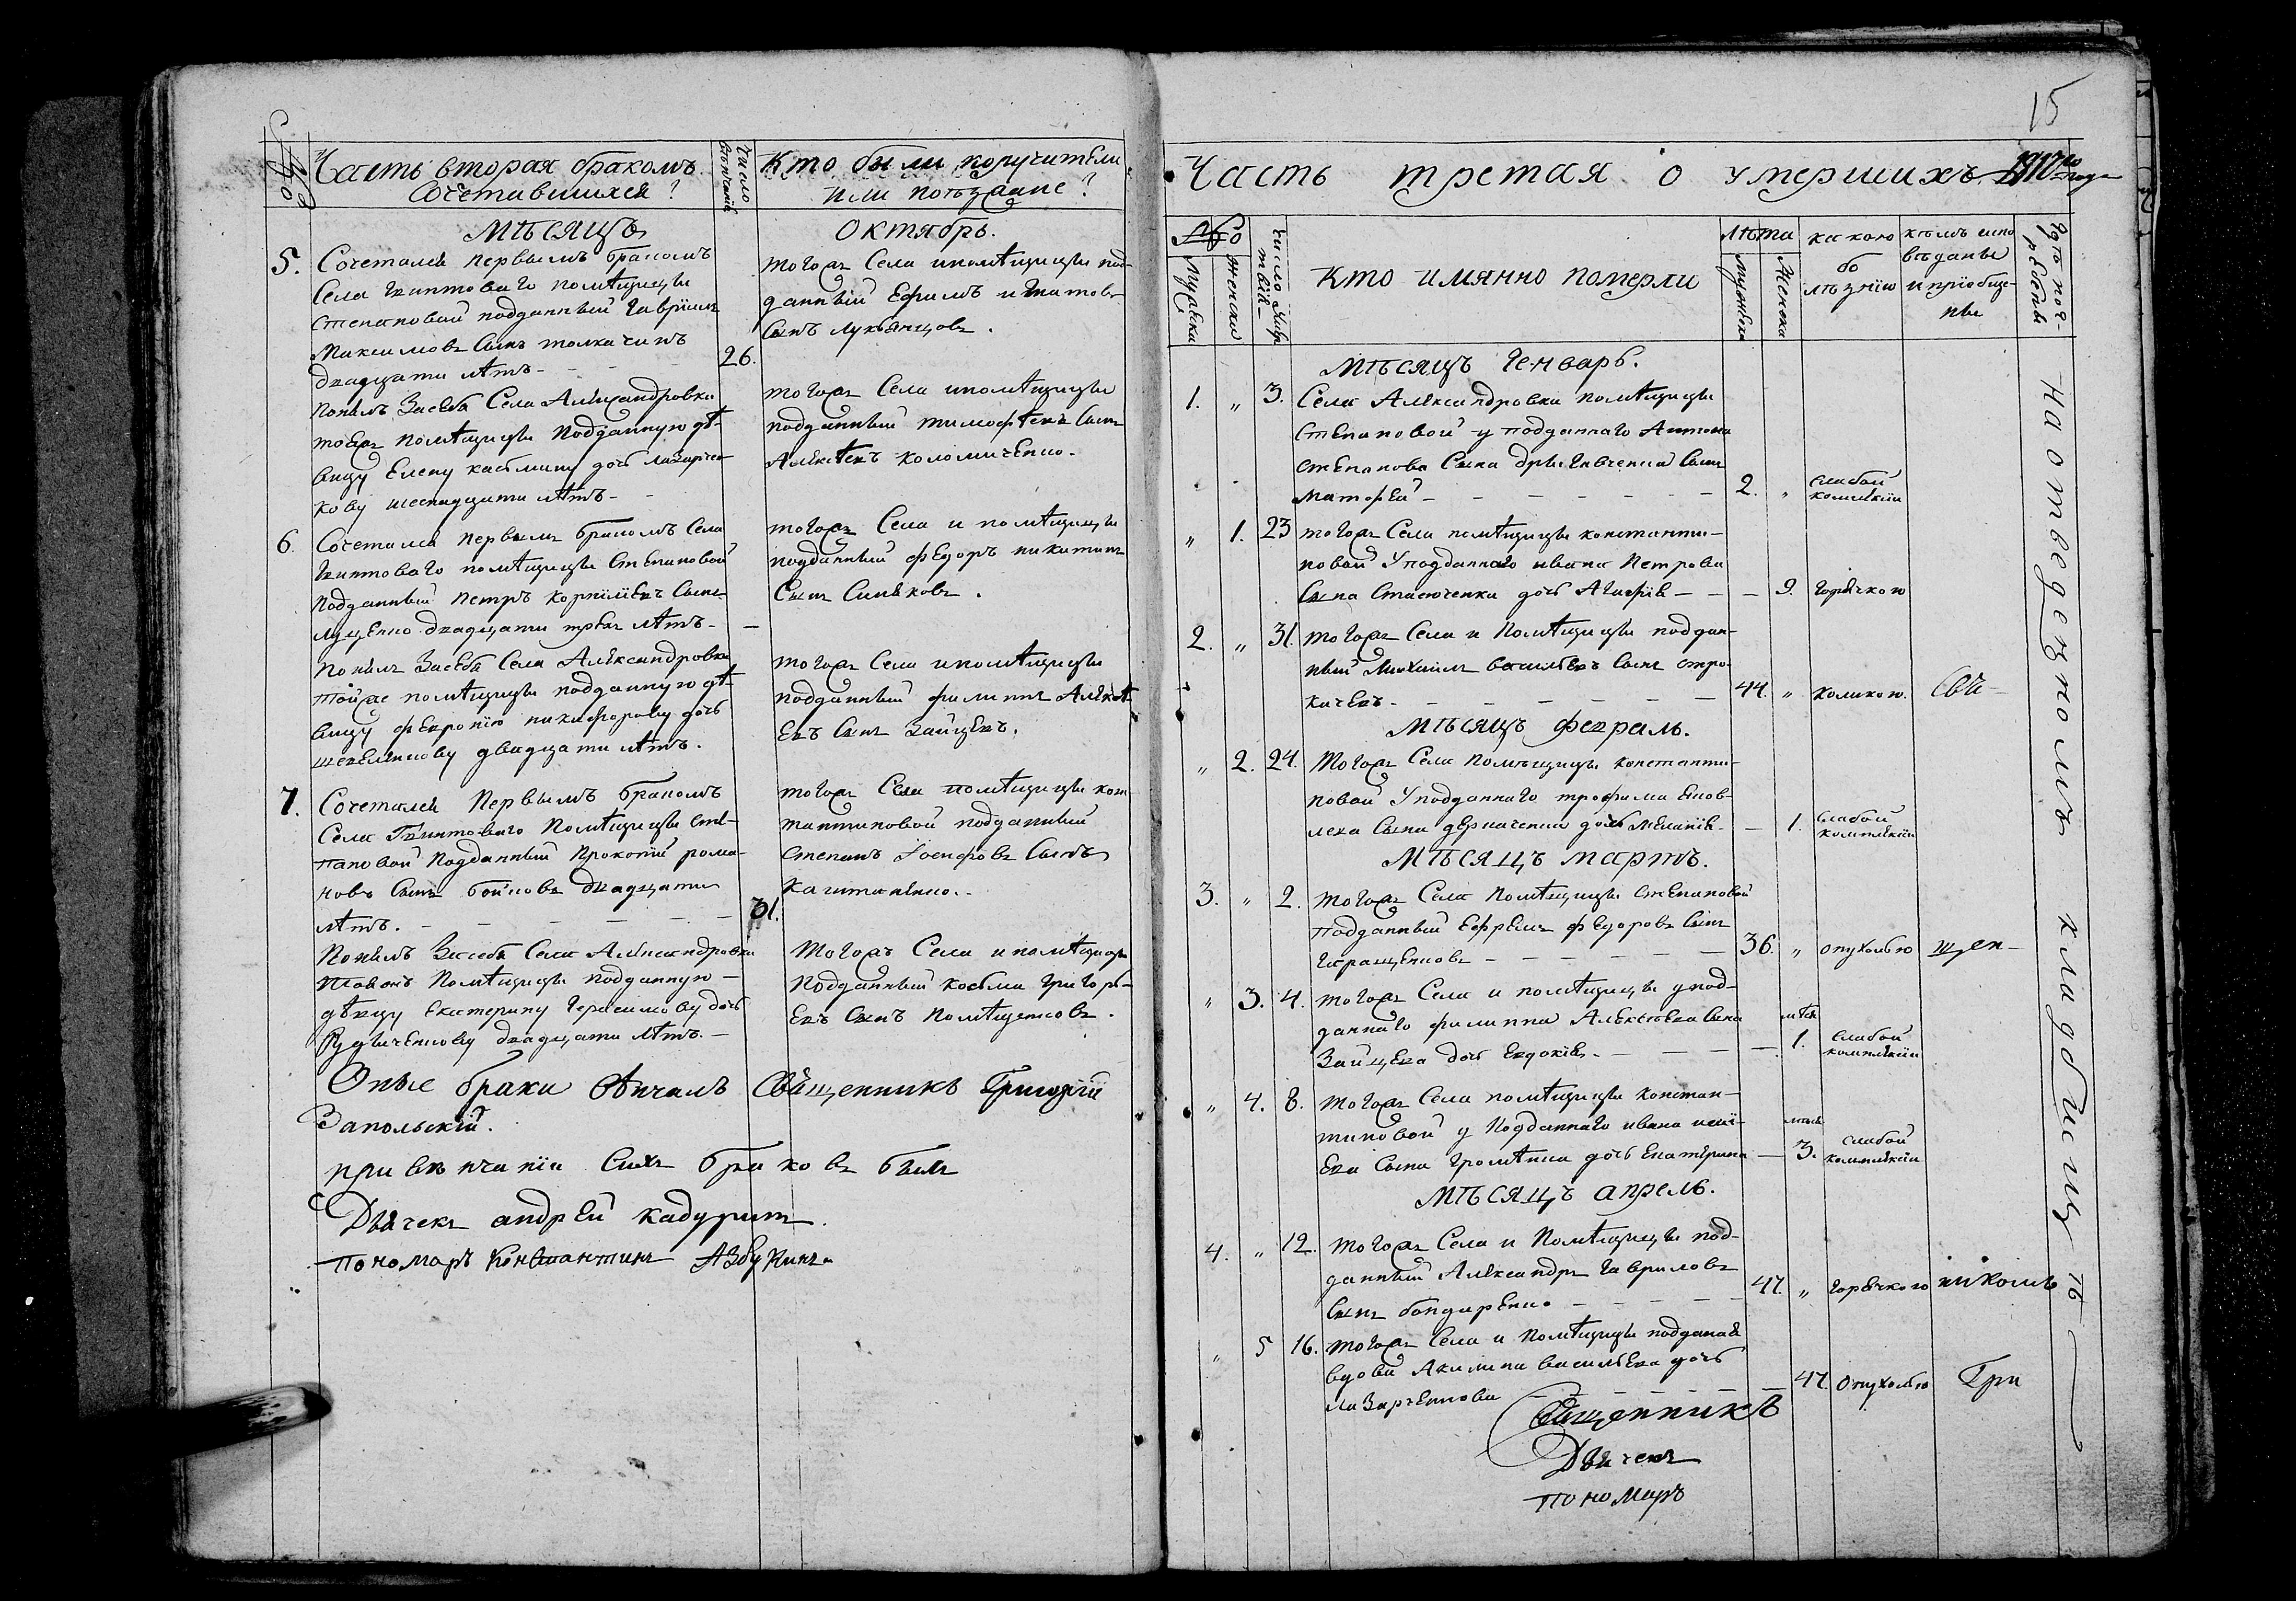 15
№
Часть вторая бракомъ
Сочетавшихся?
Число
Кто были поручители
или поѣзжане?
Мѣсяцъ
Октябрь.
5. Сочетался первымъ бракомъ
Села помѣщицы
Степановой подданный Гаврiилъ
Максимовъ Сынъ толкачинъ
двадцати лѣтъ - 26.
Понялъ Засебѣ Села Александровки
тоеяж помѣщицы подданную дѣ-
вицу Елену дочь
кову шеснадцати лѣтъ -
тогож Села ипомѣщицы под-
данный Ефимъ Титовъ
Сынъ Лукьянцовъ.
тогож Села ипомѣщицы
подданный тимофѣевъ Сынъ
Алексѣевъ коломиченко.
6. Сочетался первымъ бракомъ Села
помѣщицы Степановой
подданный Петръ Корнилiевъ Сынъ
Луценко двадцати трехъ лѣтъ -
Понялъ Засебѣ Села Александровки
тойже помѣщицы подданную дѣ-
вицу февронiю никифорову дочь
двадцати лѣтъ.
тогож Села и помѣщицы
подданный федоръ никитинъ
Сынъ Синяковъ.
тогож Села ипомѣщицы
подданный филиппъ Алексѣ-
евъ Сынъ Зайцевъ.
7. Сочетался Первымъ бракомъ
Села Помѣщицы Сте-
пановой Подданный Прокопiй рома-
новъ Сынъ бойковъ двадцати
лѣтъ. - 31.
Понялъ Засебѣ Села Александровки
Помѣщицы подданную -
дѣвицу Екатерину Герасимову дочь
двадцати лѣтъ. -
тогож Села помѣщицы кон-
стантиновой подданный
Степанъ Iосифовъ Сынъ
Капитаненко.
Тогожъ Села ипомѣщицы
Подданный косьма григорь-
евъ Сынъ Помѣщенковъ.
Оные браки вѣнчалъ Священникъ Григорiй
Запольскiй.
при вѣнчанiи Сихъ браковъ былъ
Дьячекъ андрей кадуринъ.
Пономарь Константинъ Азбукинъ
Часть третая о умершихъ 1817го года
№
Мужска
женска
Кто имянно померли
лѣта
Мужска
Женска
какою
бо
лѣзнiю
кѣмъ испо
вѣданы
и прiобще-
ны
Гдѣ пог-
ребены
Мѣсяцъ Генварь.
1. „ 3. Села Александровки помѣщицы
Степановой у подданнаго Антона
Степанова Сына Сынъ
Матофей - 2. „ Слабой комплекiи
„ 1. 23 тогож Села помѣщицы константи-
новой Уподданнаго ивана Петрова
Сына Стасюченки дочь Агафiя - 9. горячкою
2. „ 31. тогож Села и Помѣщицы поддан-
ный Михаилъ васильевъ Сынъ стро-
качевъ - 44. „ коликою. Свя-
Мѣсяцъ февраль.
„ 2. 24. Тогож Села Помѣщицы константи-
новой Уподданнаго трофима Яков-
лева Сына деркаченки дочь Меланiя - 1. Слабой комплекiи
Мѣсяцъ мартъ.
3. „ 2. Тогож Села Помѣщицы Степановой
Подданный Ефремъ федоровъ Сынъ
- 36. „ опухолью щен-
„ 3. 4. тогож Села и помѣщицы упод-
даннаго филиппа Алексѣева Сына
Зайцева дочь Евдокiя. - 1. Слабой комплекiи
„ 4. 8. тогож Села помѣщицы констан-
тиновой у Подданнаго ивана
ева Сына дочь Екатерина - 3. Слабой комплекiи
Мѣсяцъ апрель.
4. „ 12. тогож Села и Помѣщицы под-
данный Александръ Гавриловъ
Сынъ бондаренко - 47. „ горячкою никомъ
„ 5 16. тогож Села и Помѣщицы подданая
вдова Акилина васильева дочь
Лазарченкова - 47. Опухолью Гри
Священникъ
Дьячекъ
Пономарь
На отведенномъ кладбищѣ